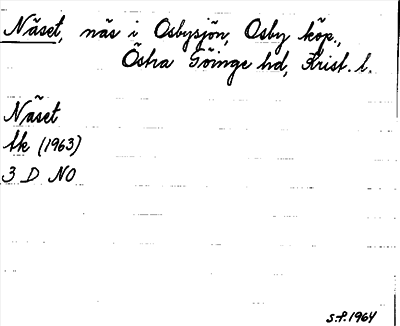 Näset, näs i Osbysjön, Osby köp.,
Östra Göinge hd, Krist. l.
Näset
tk (1963)
3 D NO
s.f. 1964